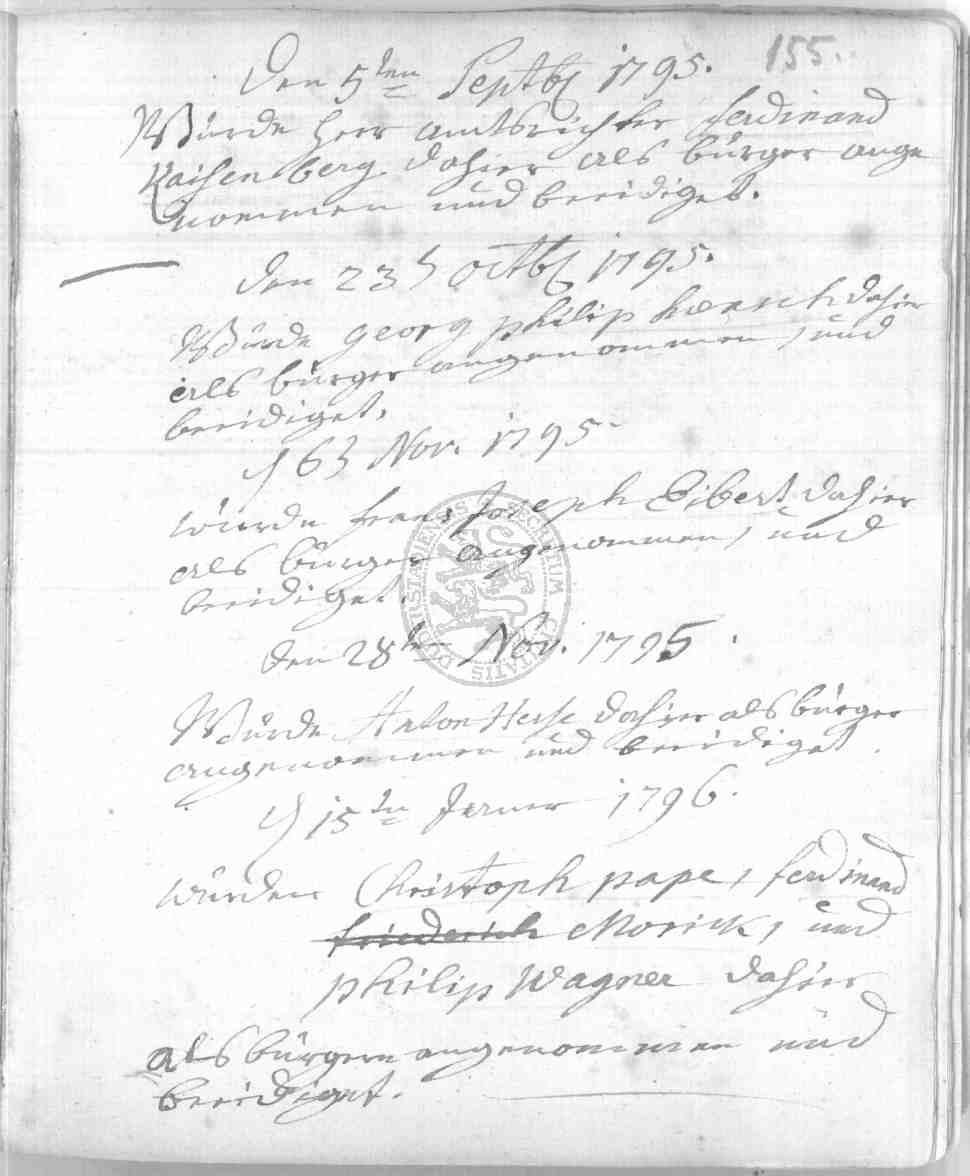 155.
Den 5ten Septbr 1795.
Würde Herr amtsrichter ferdinand
Kaisenberg dahier als bürger ange
nommen und beeidiget.
den 23t octbr 1795.
Würde georg philip dahier
als bürger angenommen, und
beeidiget.
Nov. 1795
würde frans Joseph Eibert dahier
als bürger angenommen, und
beeidiget.
den 28ten Nov. 1795.
Würde Anton Hesse dahier als bürger
angenommen und beeidiget.
15ten Jenner 1796.
würden Christoph pape, ferdinand
friederich Morick, und
philip Wagner dahier
als bürgern angenommen und
beeidiget.